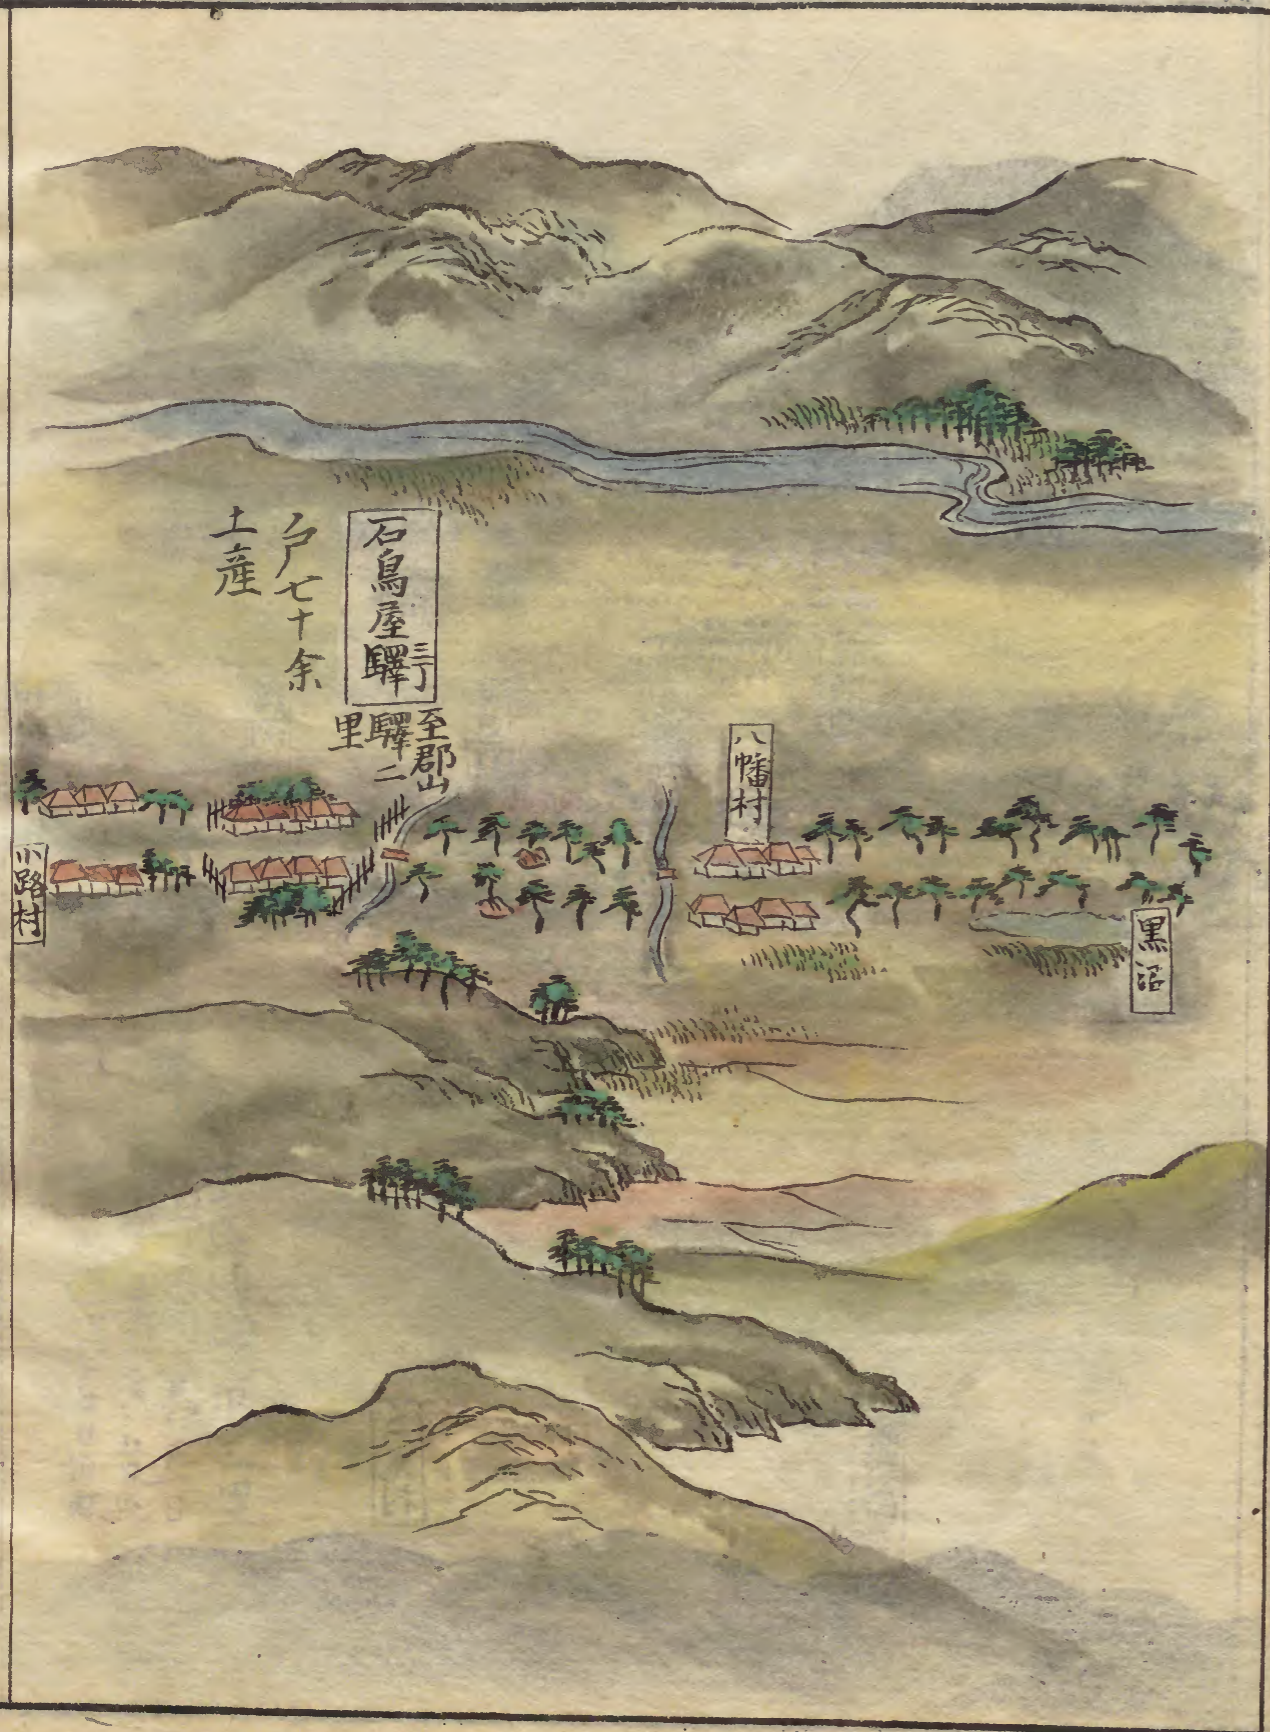 黒沼
八幡村
石鳥屋驛三丁
至郡山
驛二
里
戸七十余
土産
小路村